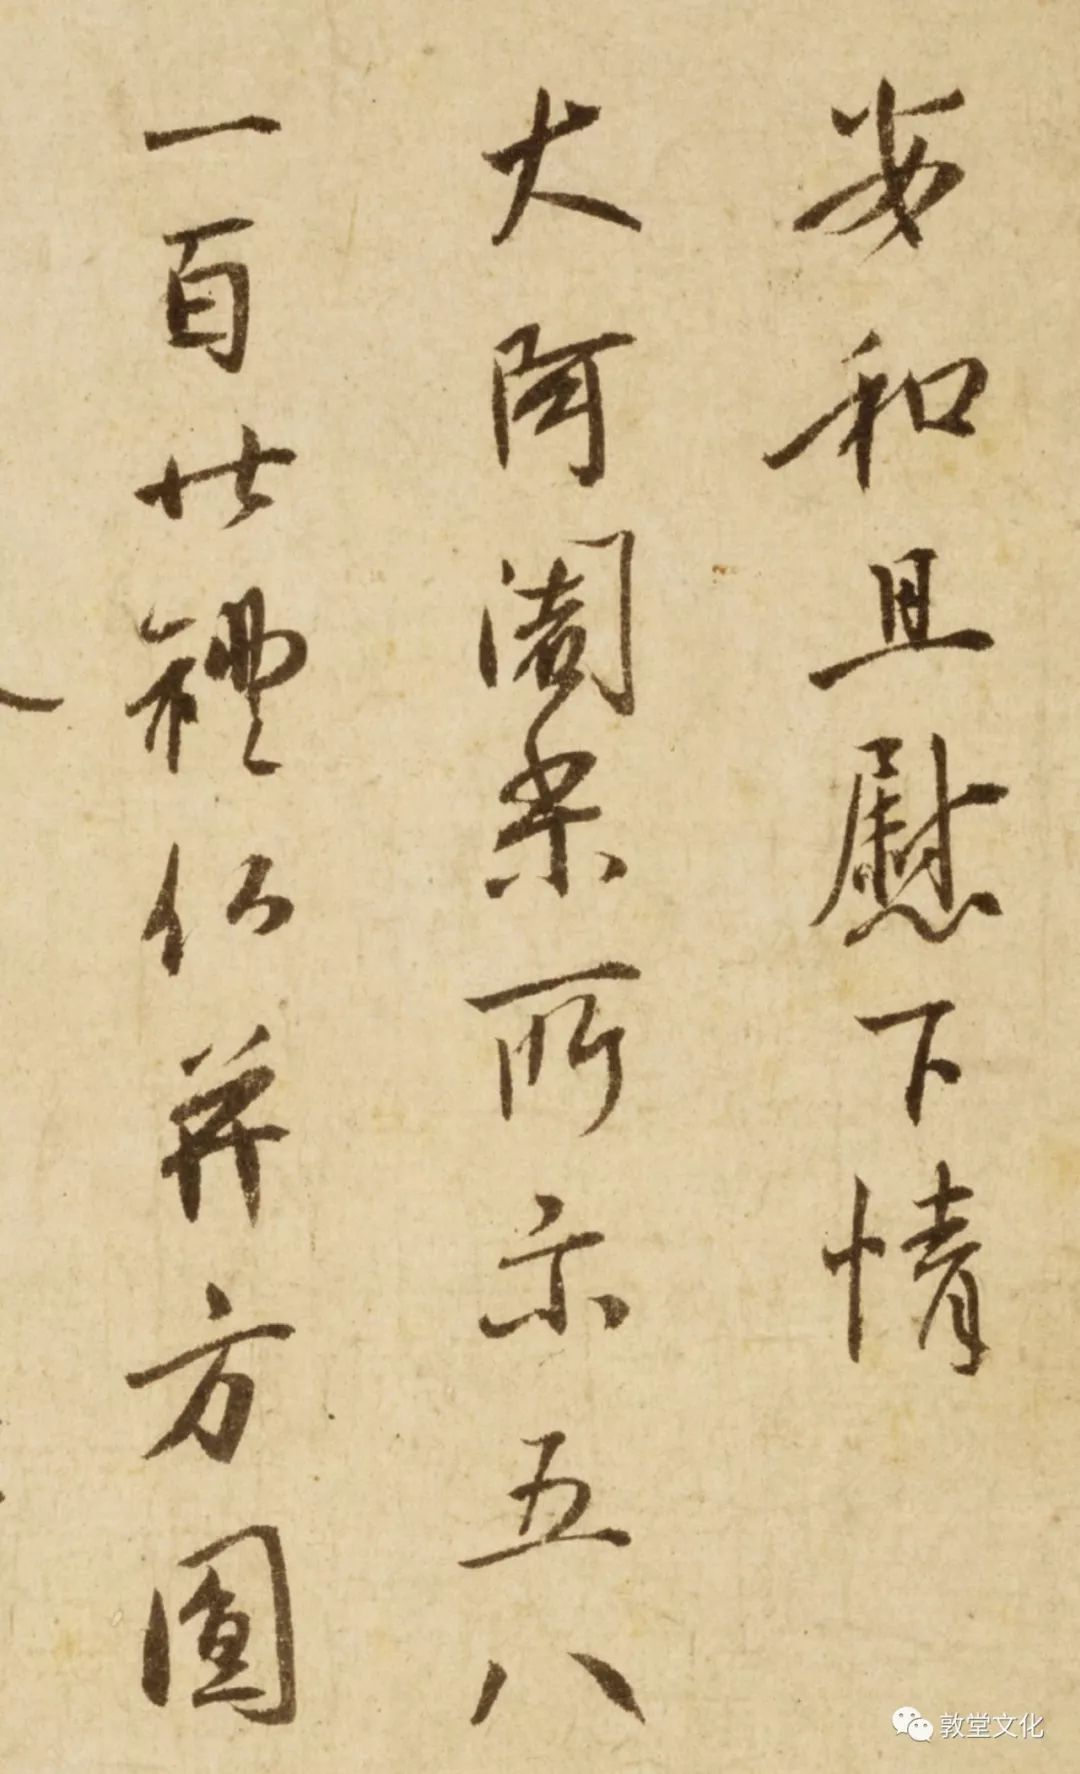 安和且慰下情
大阿闍梨所示五八
一百廿禮仏并方圓
敦堂文化